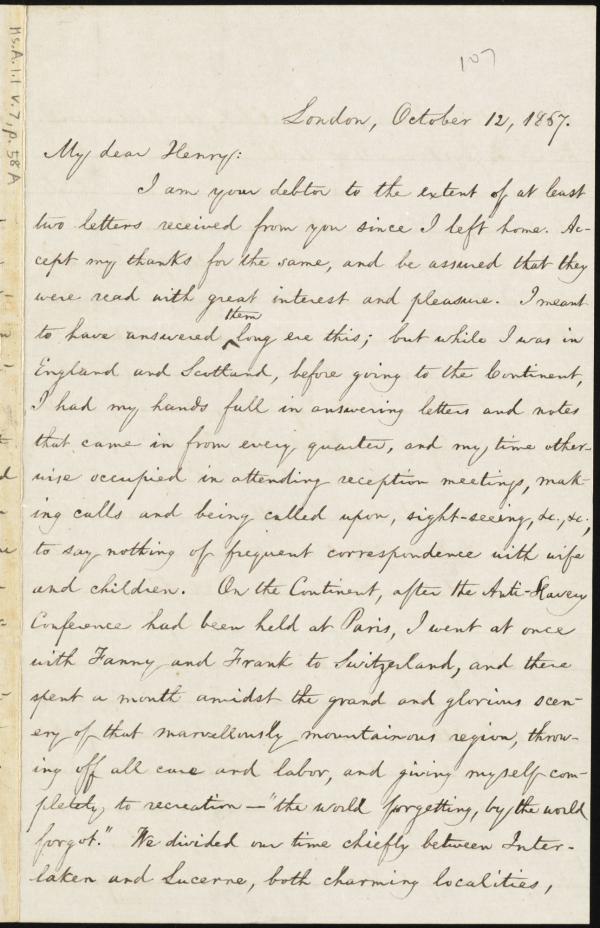 107
Ms.A.1.1 v.7, p.58A
London, October 12, 1867.
My dear Henry:
I am your debtor to the extent of at least
two letters received from you since I left home. Ac-
cept my thanks for the same, and be assured that they
were read with great interest and pleasure. I meant
them
to have answered long ere this; but while I was in
England and Scotland, before going to the Continent,
I had my hands full in answering letters and notes
that came in from every quarter, and my time other-
wise occupied in attending reception meetings, mak-
ing calls and being called upon, sight-seeing, &c., &c.,
to say nothing of frequent correspondence with wife
and children. On the Continent, after the Anti-Slavery
Conference had been held at Paris, I went at once
with Fanny and Frank to Switzerland, and there
spent a month amidst the grand and glorious scen-
ery of that marvellously mountainous region, throw-
ing off all care and labor, and giving myself com-
pletely to recreation—"the world forgetting, by the world
forgot." We divided our time chiefly between Inter-
laken and Lucerne, both charming localities,